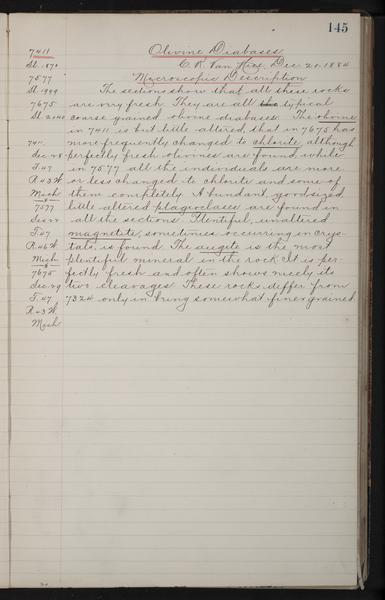 145
7411 Olivine Diabases.
Sl. 1870 C. R. Van Hise, Dec. 20, 1884
7577 Macroscopic Description
Sl. 1999 The sections show that all these rocks
7675 are very fresh. They are all the typical
Sl. 2040 coarse grained olivine diabases. The olivine
in 7411 is but little altered, that in 7675 has
7411. more frequently changed to chlorite, although
Sec. 28 perfectly fresh olivines are found, while
T. 47 in 7577 all the individuals are more
R. 43 W or less changed to chlorite and some of
Mich them completely. Abundant, good sized,
7577 little altered plagioclases are found in
Sec. 22 all the sections. Plentiful, unaltered
T. 47 magnetite, sometimes occurring in crys-
R. 46 W. tals, is found. The augite is the most
Mich plentiful mineral in the rock. It is per-
7675 fectly fresh and often shows nicely its
Sec. 29 two cleavages. These rocks differ from
T. 47 7324 only in being somewhat finer grained
R. 43 W.
Mich